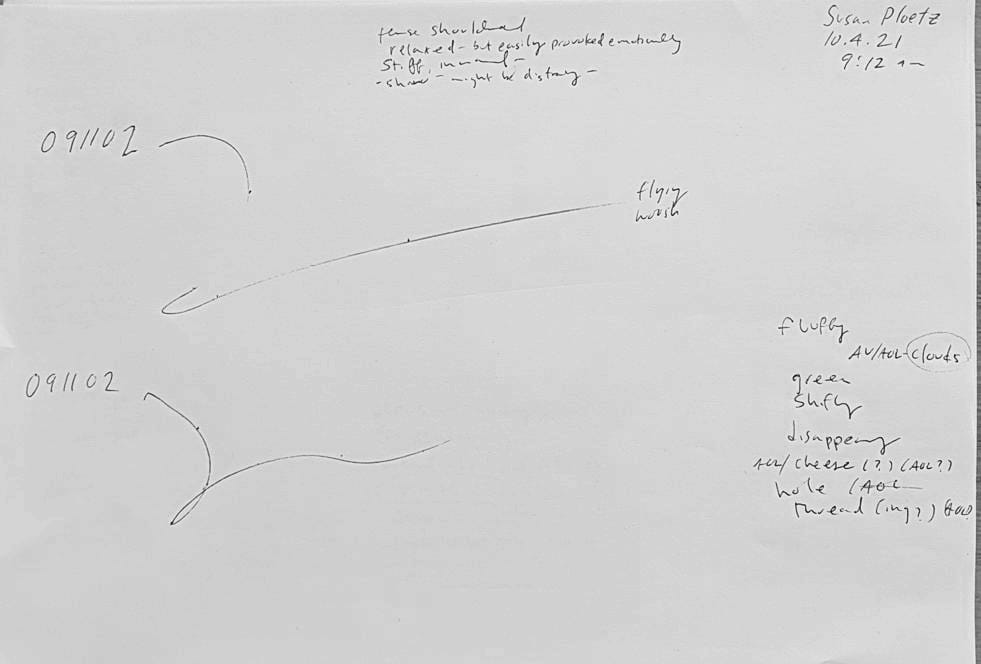 Susan Ploetz
10.4.21
9:12 am
tense shoulders
relaxed - but easily provoked emotionally
stiff, in mind -
might be distracting -
091102
flying
woosh
091102
fluffy
AV/AOL - clouds
green
shifty
disappearing
AOL/ cheese (?) (AOL?)
hole (AOL
thread (ing?)